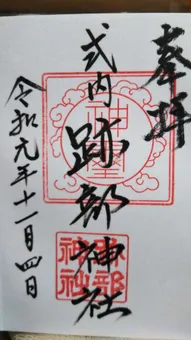 奉拝
式内 跡部神社
令和元年十一月四日